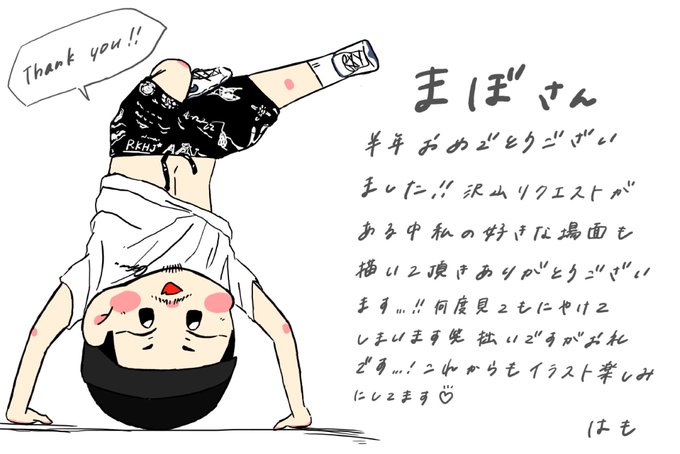 Thank you!!
RKHJ
まぼさん
半年おめでとうござい
ました!!沢山リクエストが
ある中私の好きな場面も
描いて頂きありがとうござい
ます...!!何度見てもにやけて
しまいます笑 拙いですがお礼
です...!これからもイラスト楽しみ
にしてます♡
はも